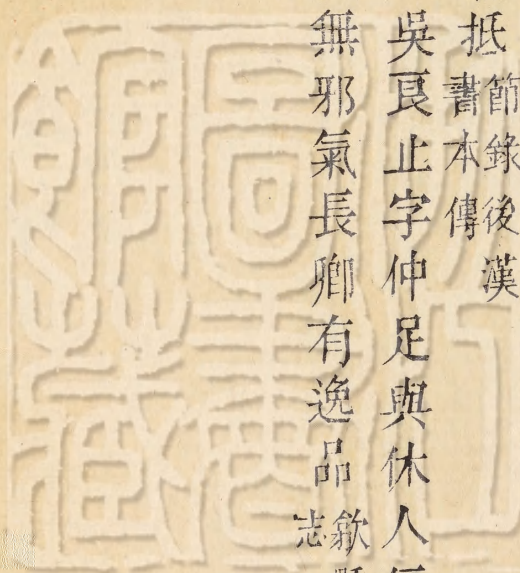 抵節錄後漢
書本傳
吳良止字仲足與休人
無邪氣長卿有逸品歙
志